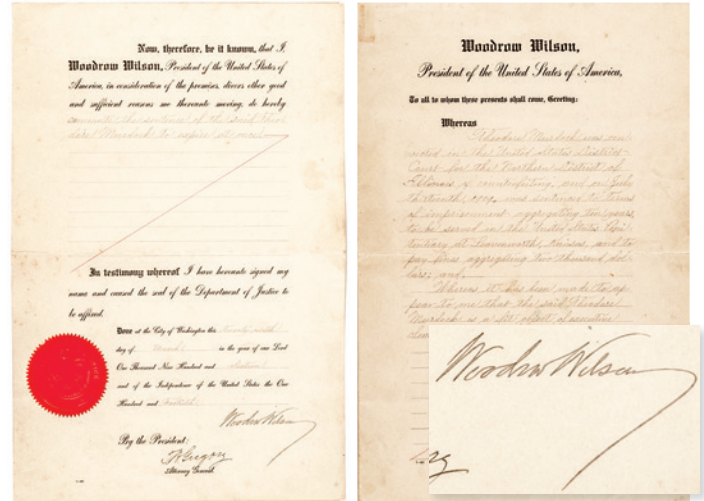 Now, therefore, be it known, that I,
Woodrow Wilson, President of the United States of
America, in consideration of the premises, divers other good
and sufficient reasons me thereunto moving, do hereby
commute the sentence of the said Theo-
dore Murdock to expire at once
In testimony whereof I have hereunto signed my
name and caused the seal of the Department of Justice to
be affixed.
Done at the City of Washington this
day of March in the year of our Lord
One Thousand Nine Hundred and sixteen
and of the Independence of the United States the One
Hundred and fortieth.
Woodrow Wilson
By the President:
TWGregory
Attorney General.
Woodrow Wilson,
President of the United States of America,
To all to whom these presents shall come, Greeting:
Whereas Theodore Murdock was con-
victed in the United States District
Court for the Northern District of
Illinois of counterfeiting, and on July
thirteenth, was sentenced to terms
of imprisonment aggregating ten years,
to be served in the United States Peni-
tentiary at Leavenworth, Kansas, and to
pay fines aggregating two thousand dol-
lars; and,
Whereas it has been made to ap-
pear to me that the said Theodore
Murdock is a fit object of executive
Woodrow Wilson